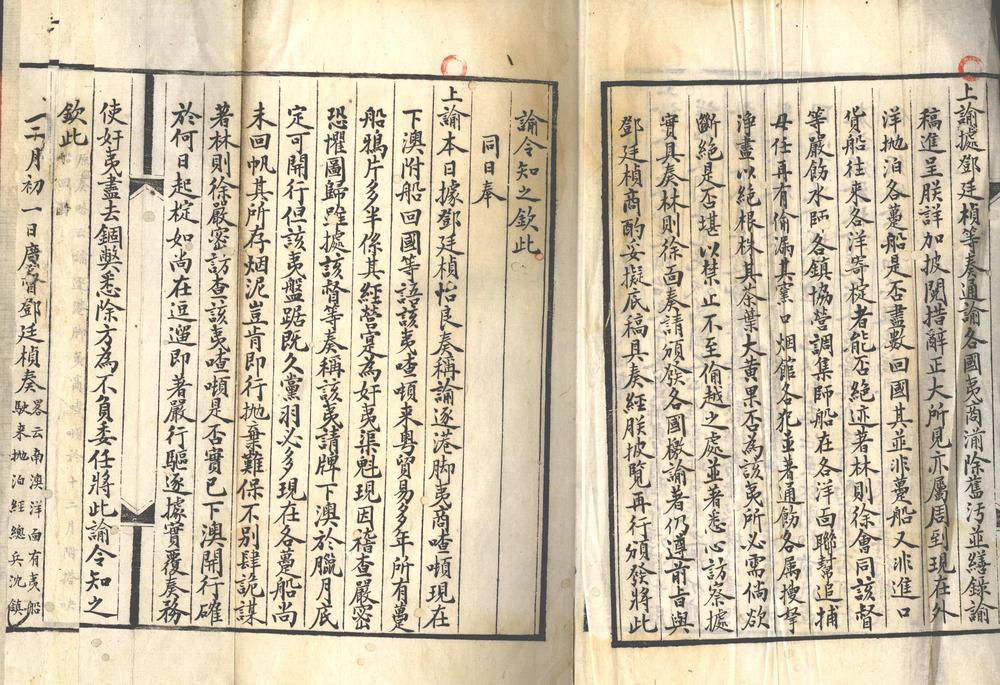 上諭據鄧廷楨等奏通諭各國夷商湔除舊汚並繕錄諭
稿進呈朕詳加披閱措辭正大所見亦屬周到現在外
洋拋泊各躉船是否盡數回國其並非躉船又非進口
貨船往來各洋寄椗者能否絶迹著林則徐會同該督
等嚴飭水師各鎮協營調集師船在各洋面聯幇追捕
毋任再有偷漏其窰口烟館各犯並著通飭各属搜拏
淨盡以絕根株其茶葉大黃果否為該夷所必需倘欲
斷絕是否堪以禁止不至偷越之處並著悉心訪察據
實具奏林則徐面奏請頒發各國檄諭著仍遵前旨與
鄧廷楨商酌妥擬底稿具奏經朕披覽再行頒發將此
諭令知之欽此
同日奉
上諭本日據鄧廷楨怡良奏稱諭逐港脚夷商喳噸現在
下澳附船回國等語該夷喳噸來粵貿易多年所有躉
船鴉片多半係其經營寔為奸夷渠魁現因稽查嚴密
恐懼圖歸雖據該督等奏稱該夷請牌下澳於臘月底
定可開行但該夷盤踞既久黨羽必多現在各躉船尚
未回帆其所存烟泥豈肯即行拋棄難保不別肆詭謀
著林則徐嚴密訪查該夷喳噸是否實已下澳開行確
於何日起椗如尚在逗遛即著嚴行驅逐據實覆奏務
使奸夷盡去錮獘悉除方為不負委任將此諭令知之
欽此
二月初一日廣督鄧廷楨奏畧云南澳洋面有夷船
駛来拋泊經總兵沈鎮